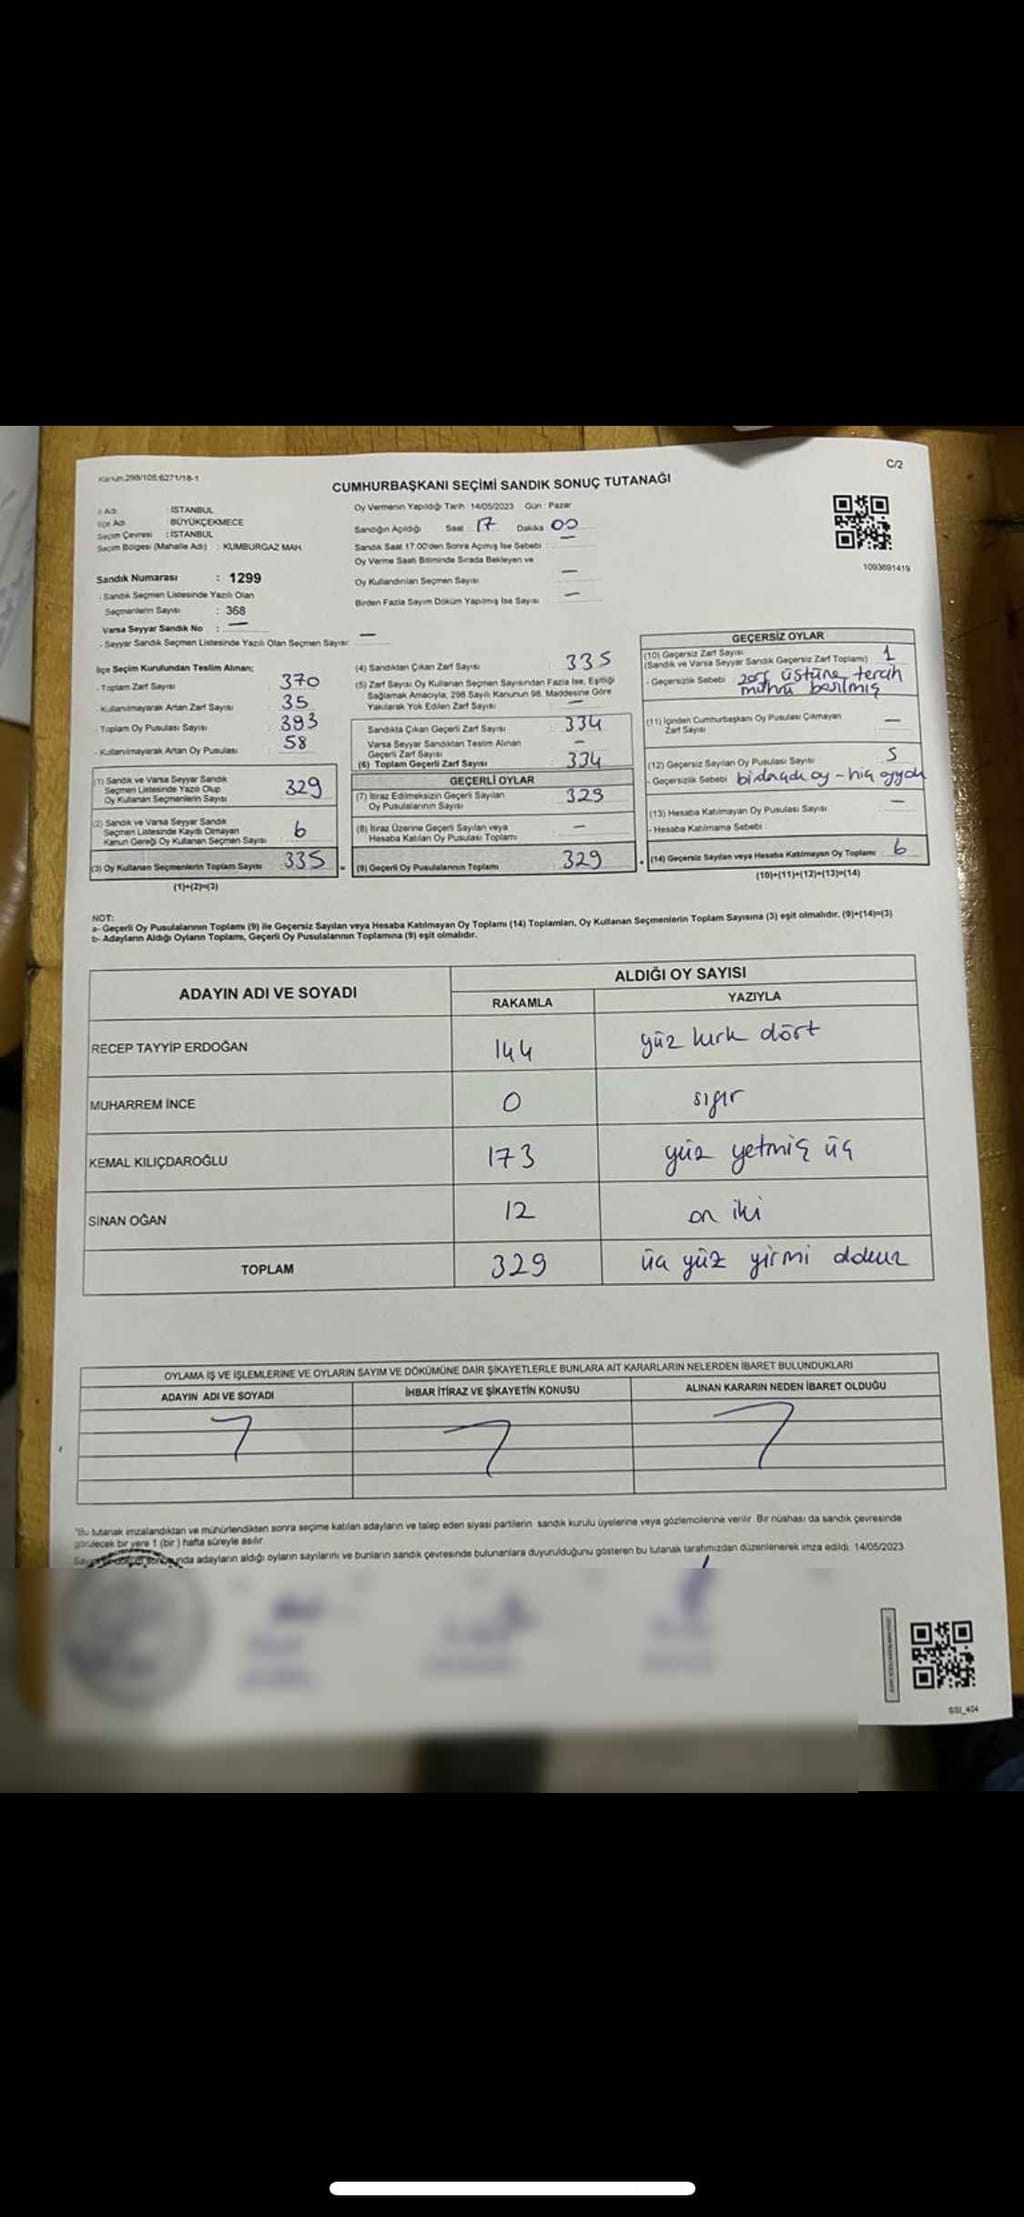 Kanun 298/105;6271/18-1
C/2
CUMHURBAŞKANI SEÇİMİ SANDIK SONUÇ TUTANAĞI
İl Adı : İSTANBUL
İlçe Adı : BÜYÜKÇEKMECE
Seçim Çevresi : İSTANBUL
Seçim Bölgesi (Mahalle Adı) : KUMBURGAZ MAH.
Sandık Numarası : 1299
- Sandık Seçmen Listesinde Yazılı Olan
Seçmenlerin Sayısı : 368
Varsa Seyyar Sandık No : —
- Seyyar Sandık Seçmen Listesinde Yazılı Olan Seçmen Sayısı: —
Oy Vermenin Yapıldığı Tarih 14/05/2023 Gün : Pazar
Sandığın Açıldığı Saat 17 Dakika 00
Sandık Saat 17:00'den Sonra Açımış İse Sebebi : —
Oy Verme Saati Bitiminde Sırada Bekleyen ve
Oy Kullandırılan Seçmen Sayısı —
Birden Fazla Sayım Döküm Yapılmış İse Sayısı —
1093691419
İlçe Seçim Kurulundan Teslim Alınan;
- Toplam Zarf Sayısı 370
- Kullanılmayarak Artan Zarf Sayısı 35
Toplam Oy Pusulası Sayısı 393
- Kullanılmayarak Artan Oy Pusulası 58
(1) Sandık ve Varsa Seyyar Sandık
Seçmen Listesinde Yazılı Olup
Oy Kullanan Seçmenlerin Sayısı 329
(2) Sandık ve Varsa Seyyar Sandık
Seçmen Listesinde Kaydı Olmayan
Kanun Gereği Oy Kullanan Seçmen Sayısı 6
(3) Oy Kullanan Seçmenlerin Toplam Sayısı 335
(1)+(2)=(3)
(4) Sandıktan Çıkan Zarf Sayısı : 335
(5) Zarf Sayısı Oy Kullanan Seçmen Sayısından Fazla İse, Eşitliği
Sağlamak Amacıyla, 298 Sayılı Kanunun 98. Maddesine Göre
Yakılarak Yok Edilen Zarf Sayısı : —
Sandıkta Çıkan Geçerli Zarf Sayısı : 334
Varsa Seyyar Sandıktan Teslim Alınan
Geçerli Zarf Sayısı —
(6) Toplam Geçerli Zarf Sayısı : 334
GEÇERLİ OYLAR
(7) İtiraz Edilmeksizin Geçerli Sayılan
Oy Pusulalarının Sayısı 329
(8) İtiraz Üzerine Geçerli Sayılan veya
Hesaba Katılan Oy Pusulası Toplamı —
(9) Geçerli Oy Pusulalarının Toplamı 329
GEÇERSİZ OYLAR
(10) Geçersiz Zarf Sayısı
(Sandık ve Varsa Seyyar Sandık Geçersiz Zarf Toplamı) 1
- Geçersizlik Sebebi zarf üstüne tercih
mührü basılmış
(11) İçinden Cumhurbaşkanı Oy Pusulası Çıkmayan
Zarf Sayısı —
(12) Geçersiz Sayılan Oy Pusulası Sayısı 5
- Geçersizlik Sebebi
(13) Hesaba Katılmayan Oy Pusulası Sayısı —
- Hesaba Katılmama Sebebi :
(14) Geçersiz Sayılan veya Hesaba Katılmayan Oy Toplamı 6
(10)+(11)+(12)+(13)=(14)
NOT:
a- Geçerli Oy Pusulalarının Toplamı (9) ile Geçersiz Sayılan veya Hesaba Katılmayan Oy Toplamı (14) Toplamları, Oy Kullanan Seçmenlerin Toplam Sayısına (3) eşit olmalıdır. (9)+(14)=(3)
b- Adayların Aldığı Oyların Toplamı, Geçerli Oy Pusulalarının Toplamına (9) eşit olmalıdır.
ADAYIN ADI VE SOYADI
ALDIĞI OY SAYISI
RAKAMLA YAZIYLA
RECEP TAYYİP ERDOĞAN 144 yüz kırk dört
MUHARREM İNCE 0 sıfır
KEMAL KILIÇDAROĞLU 173 yüz yetmiş üç
SİNAN OĞAN 12 on iki
TOPLAM 329 üç yüz yirmi dokuz
OYLAMA İŞ VE İŞLEMLERİNE VE OYLARIN SAYIM VE DÖKÜMÜNE DAİR ŞİKAYETLERLE BUNLARA AİT KARARLARIN NELERDEN İBARET BULUNDUKLARI
ADAYIN ADI VE SOYADI İHBAR İTİRAZ VE ŞİKAYETİN KONUSU ALINAN KARARIN NEDEN İBARET OLDUĞU
"Bu tutanak imzalandıktan ve mühürlendikten sonra seçime katılan adayların ve talep eden siyasi partilerin sandık kurulu üyelerine veya gözlemcilerine verilir. Bir nüshası da sandık çevresinde
görülecek bir yere 1 (bir ) hafta süreyle asılır.
Sayım döküm sonucunda adayların aldığı oyların sayılarını ve bunların sandık çevresinde bulunanlara duyurulduğunu gösteren bu tutanak tarafımızdan düzenlenerek imza edildi. 14/05/2023
SSI_404